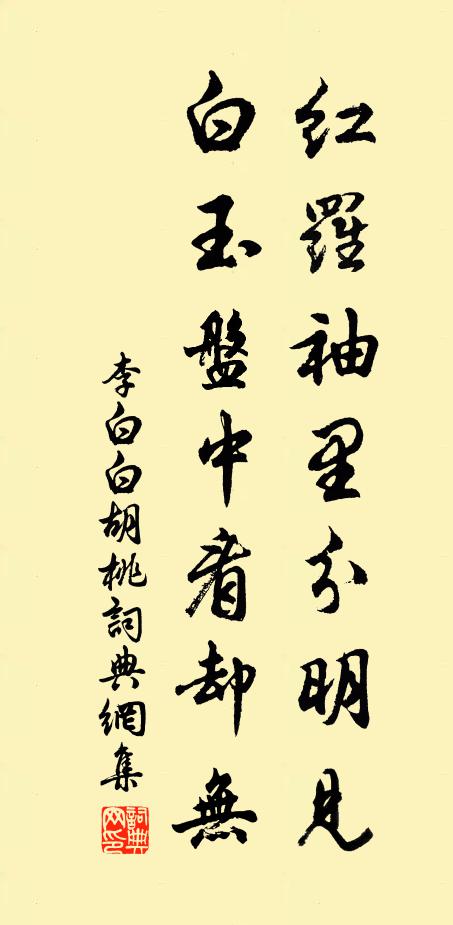 紅羅袖里分明見
白玉盤中看却無
李白白胡桃詞典網集
詞典網印